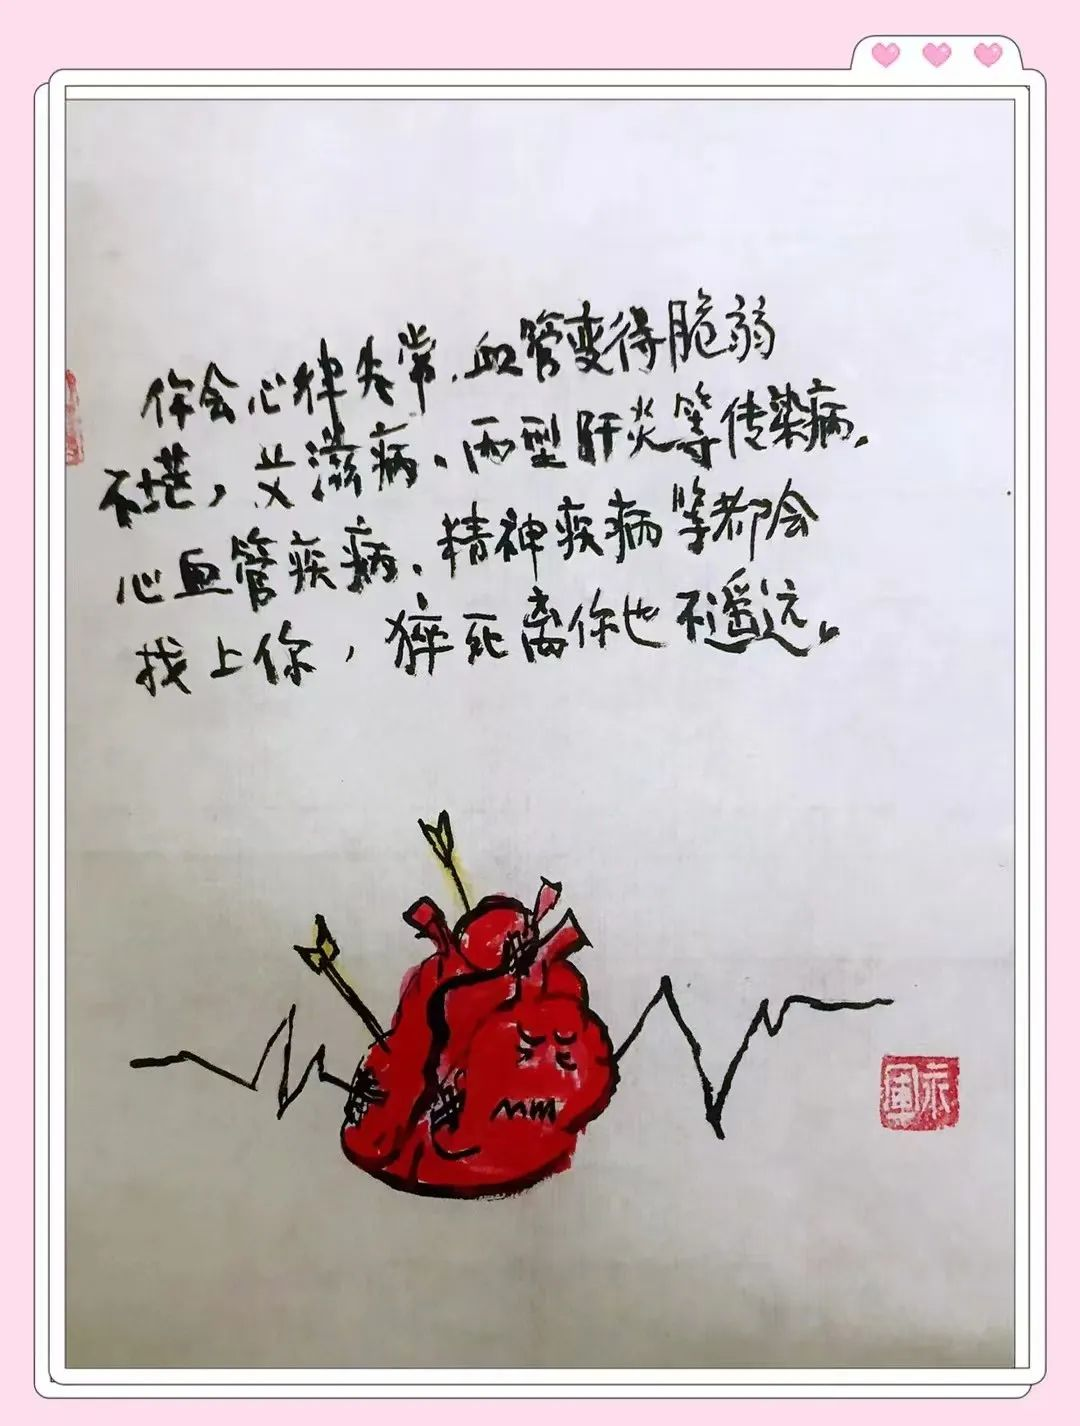 你会心律失常，血管变得脆弱
不堪，艾滋病、丙型肝炎等传染病，
心血管疾病、精神疾病等都会
找上你，猝死离你也不遥远。